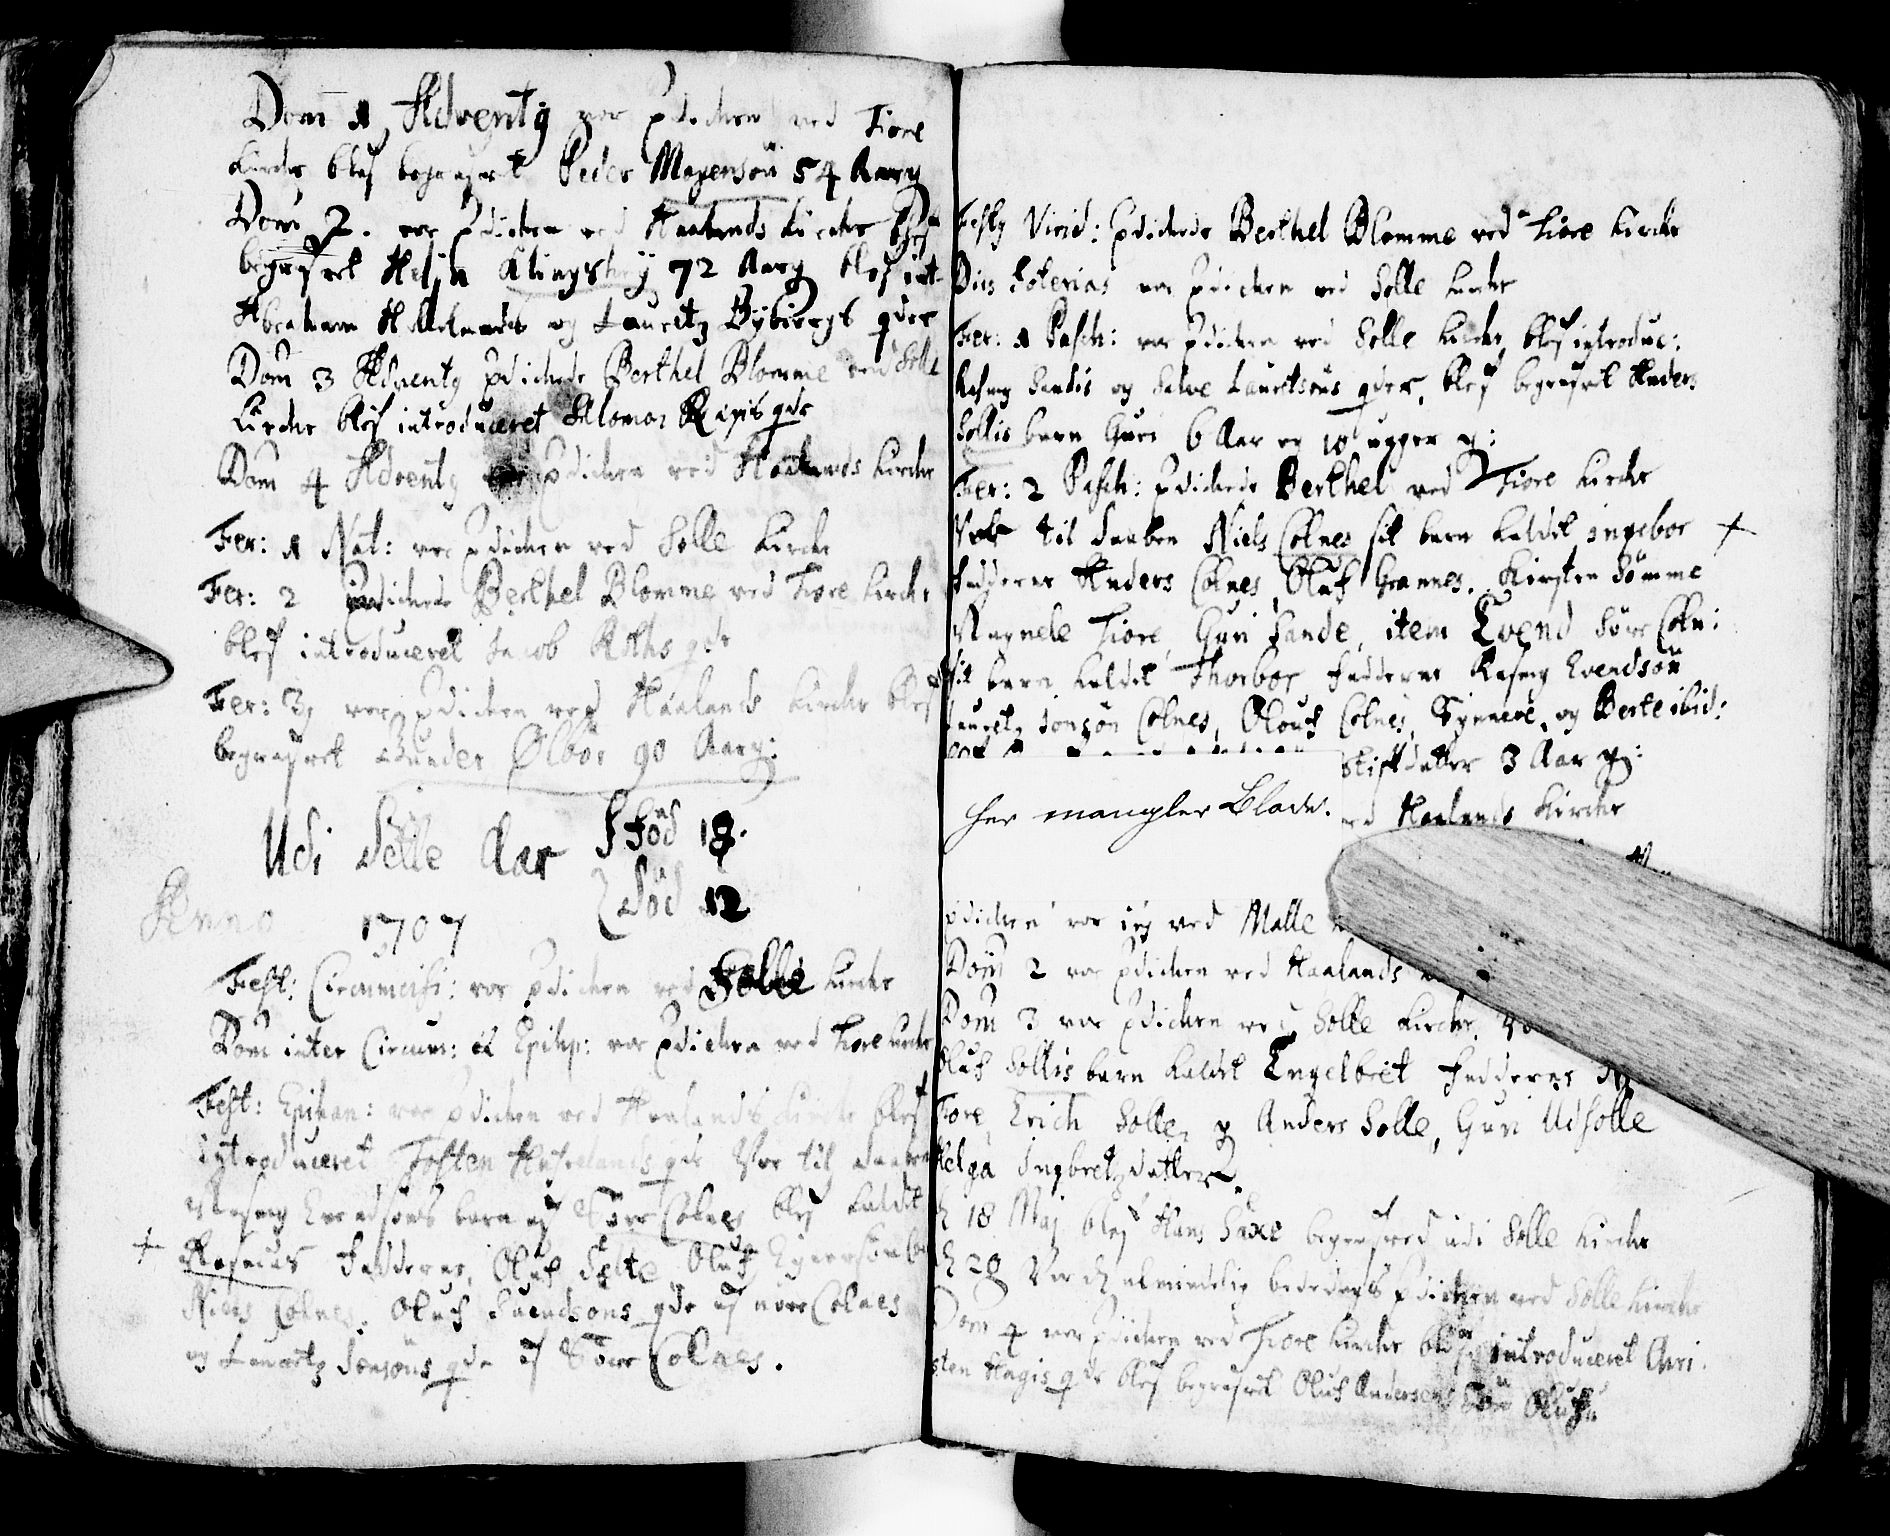 Dom 1 Adventq var Prdicken ved Tiore
Kircke blef begrafvet Peder Mogensøn 54 Aarg
Dom 2. var Prdicken ved Haalands Kircke blef
begrafvet 72 Aarg blef int
Abraham og Lauritz Bybergs qder
Dom 3 Adventq Prdickede Berthel Blomme ved Solle
Kircke blef introduceret Salomon qde
Dom 4 Adventq var Prdicken ved Haalands Kircke
Fer: 1 Nat: var Prdicken ved Solle Kircke
Fer: 2 Prdickede Berthel Blomme ved Tiore Kircke
blef introduceret Jacob qde
Fer: 3 var Prdicken ved Haalands Kircke blef
begrafvet Gunder Ølbør 90 Aarg:
Udi dette Aar Fød 18.
Død 12
Anno 1707
Fest: Circumcisi: var Prdicken ved Solle Kircke
Dom inter Circum: et Epiph: var Prdicken ved Tiore Kircke
Fest: Epiphan: var Prdicken ved Haalands Kircke blef
introduceret Tosten qde Var til daaben
Rasmg barn af Søre Colnes blef kaldet
+ Rasmus Fadderne, Oluf Oluf
Niels Colnes, Oluf Suendsøns qde af nore Colnes
og Lauritz Jonsøns qde af Søre Colnes.
Festq Virid: Prdickede Berthel Blomme ved Tiore Kircke
Dies Soterias var Prdicken ved Solle Kircke
Fer: 1 Pasch: var Prdicken ved Solle Kircke, blef introduc:
Rasmg Sandis og Salve Lauritsøns qder, blef begrafvet Anders
Sollis barn Guri 6 Aar og 18 uger g:
Fer: 2 Pasch: Prdickede Berthel ved Tiore Kircke
Var til daaben Niels Colnes sit barn kaldet Ingebor +
Fadderne Anders Colnes, Oluf Grannes, Kirsten Sømme
Magnele Tiore, Guri Sande, item Evend Søre Coln:
sit barn kaldet Thorbor Fadderne Rasmg Evendsøn
Lauritz Jonsøn Colnes, Olouf Colnes, Synneve, og Berte ibid:
Stifdatter 3 Aar g:
ved Haalands Kircke
her mangler Blade.
Prdicken var ieg ved Malle
Dom 2 var Prdicken ved Haalands
Dom 3 var Prdicken ved Solle Kircke,
Oluf Sollis barn kaldet Engelbret Fadderne
Tiore, Erich Solle, og Anders Solle, Guri Udsolle
Helga Ingbretzdatter.
d 18 Maj blef Hans Saxe begrafved udi Solle Kircke
d 20 Var d almindelig bededags Prdicken ved Solle Kircke
Dom 4 var Prdicken ved Tiore Kircke blef introduceret Chri
sten Hagis qde blef begrafvet Oluf Andersens Søn Oluf